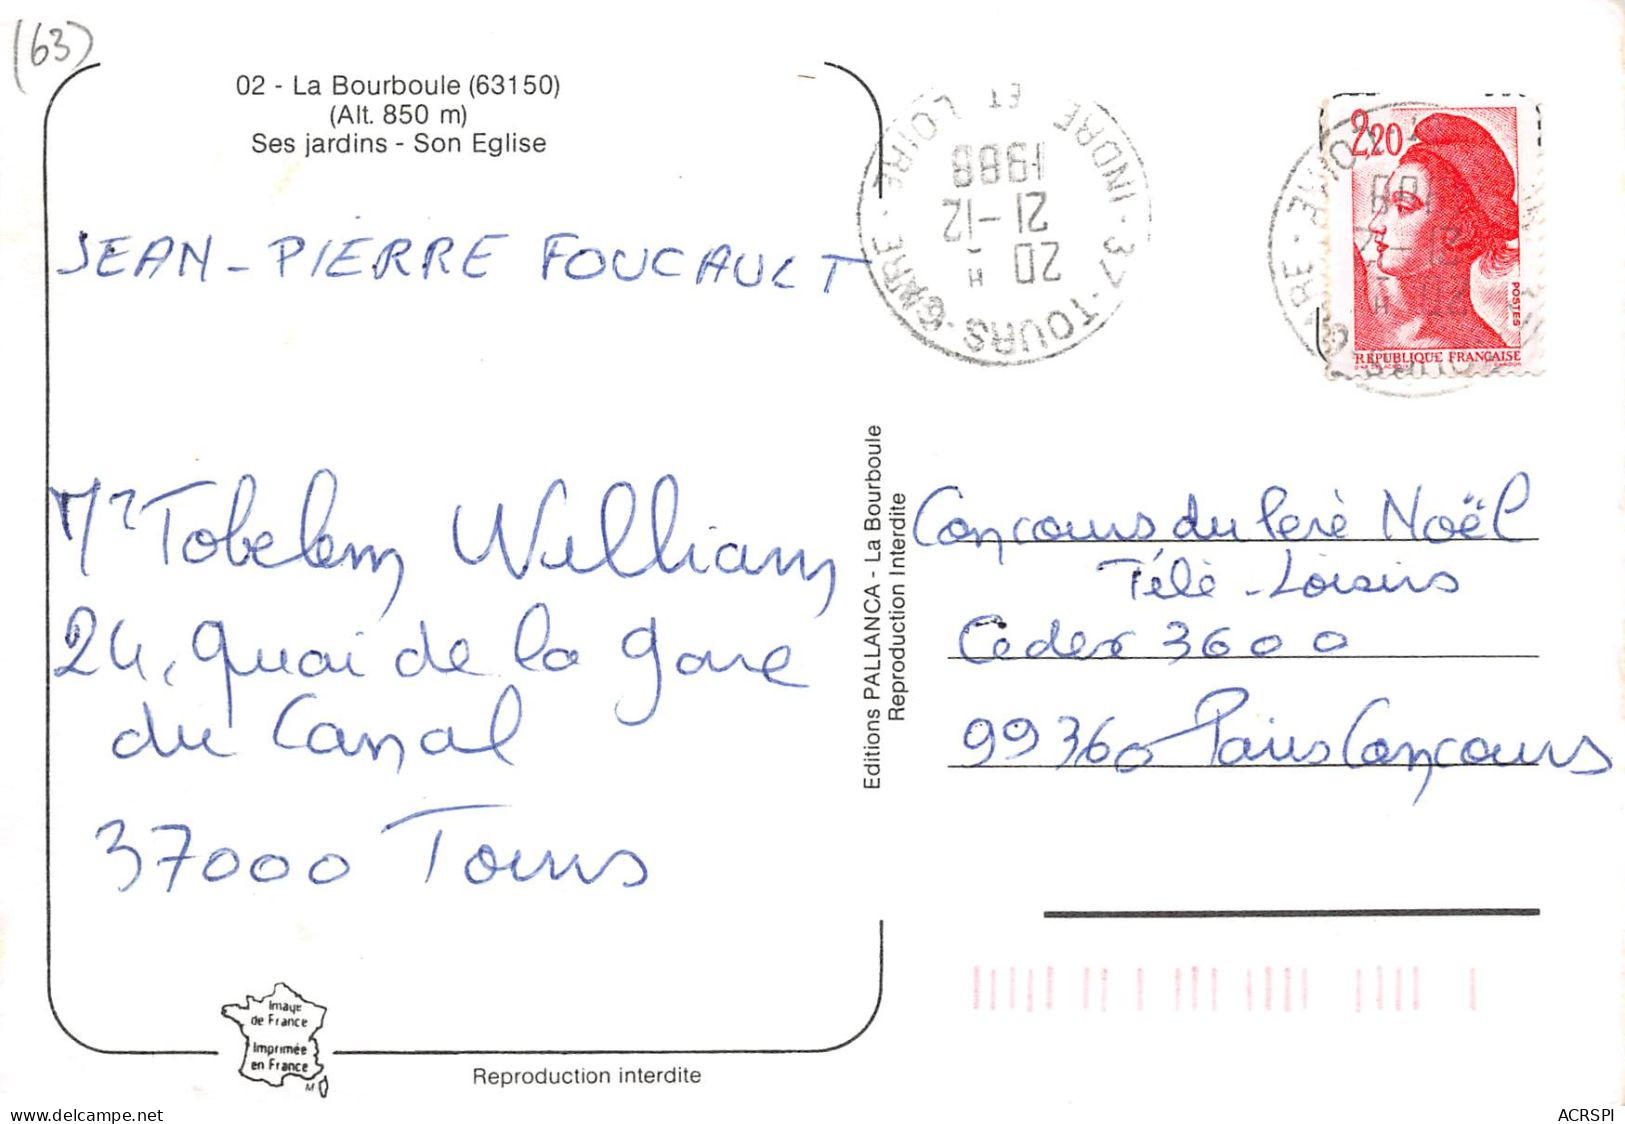 (63)
02 - La Bourboule (63150)
(Alt. 850 m)
Ses jardins - Son Eglise
JEAN-PIERRE FOUCAULT
Mr Tobelem William
24, quai de la gare
du Canal
37000 Tours
Image
de France
Imprimée
en France
Reproduction interdite
Editions PALLANCA - La Bourboule
Reproduction Interdite
37 - TOURS-GARE - INDRE ET LOIRE
20 H
21-12
1988
2,20
POSTES
RÉPUBLIQUE FRANÇAISE
Concours du Père Noël
Télé-Loisirs
Cedex 3600
99360 Paris Concours
ACRSPI